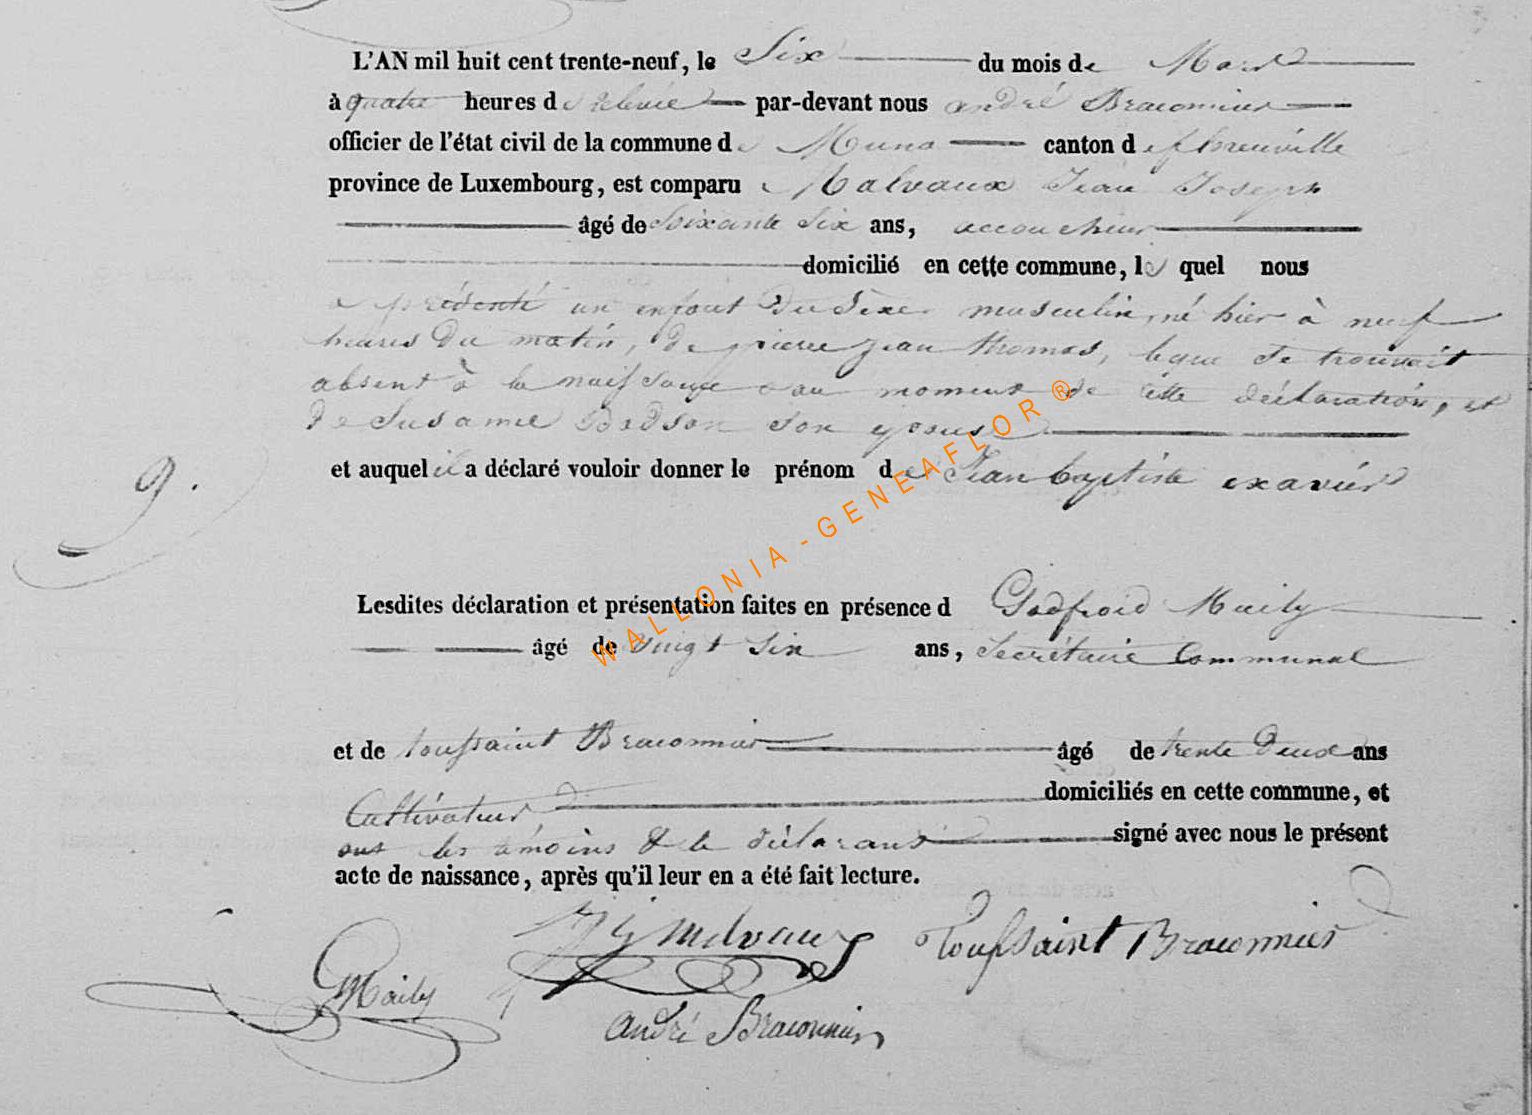 L'AN mil huit cent trente-neuf, le Six du mois de Mars
à quatre heures de relevée par-devant nous andré Braconnier
officier de l'état civil de la commune de Muno canton de florenville
province de Luxembourg, est comparu Malvaux Jean Joseph
âgé de Soixante Six ans, accoucheur
domicilié en cette commune, le quel nous
a présenté un enfant du Sexe masculin, né hier à neuf
heures du matin, de pierre jean thomas, lequel se trouvait
absent à la naissance & au moment de cette déclaration, et
de Susanne Bodson Son epouse
et auquel il a déclaré vouloir donner le prénom de Jean baptiste exavier
9.
Lesdites déclaration et présentation faites en présence d Godfroid Maily
âgé de vingt Six ans, Secrétaire Communal
et de toussaint Braconnier âgé de trente deux ans
Cultivateur domiciliés en cette commune, et
ont les témoins & le déclarant signé avec nous le présent
acte de naissance, après qu'il leur en a été fait lecture.
JJ Malvaux Toussaint Braconnier
GMaily
André Braconnier
WALLONIA-GENEAFLOR®